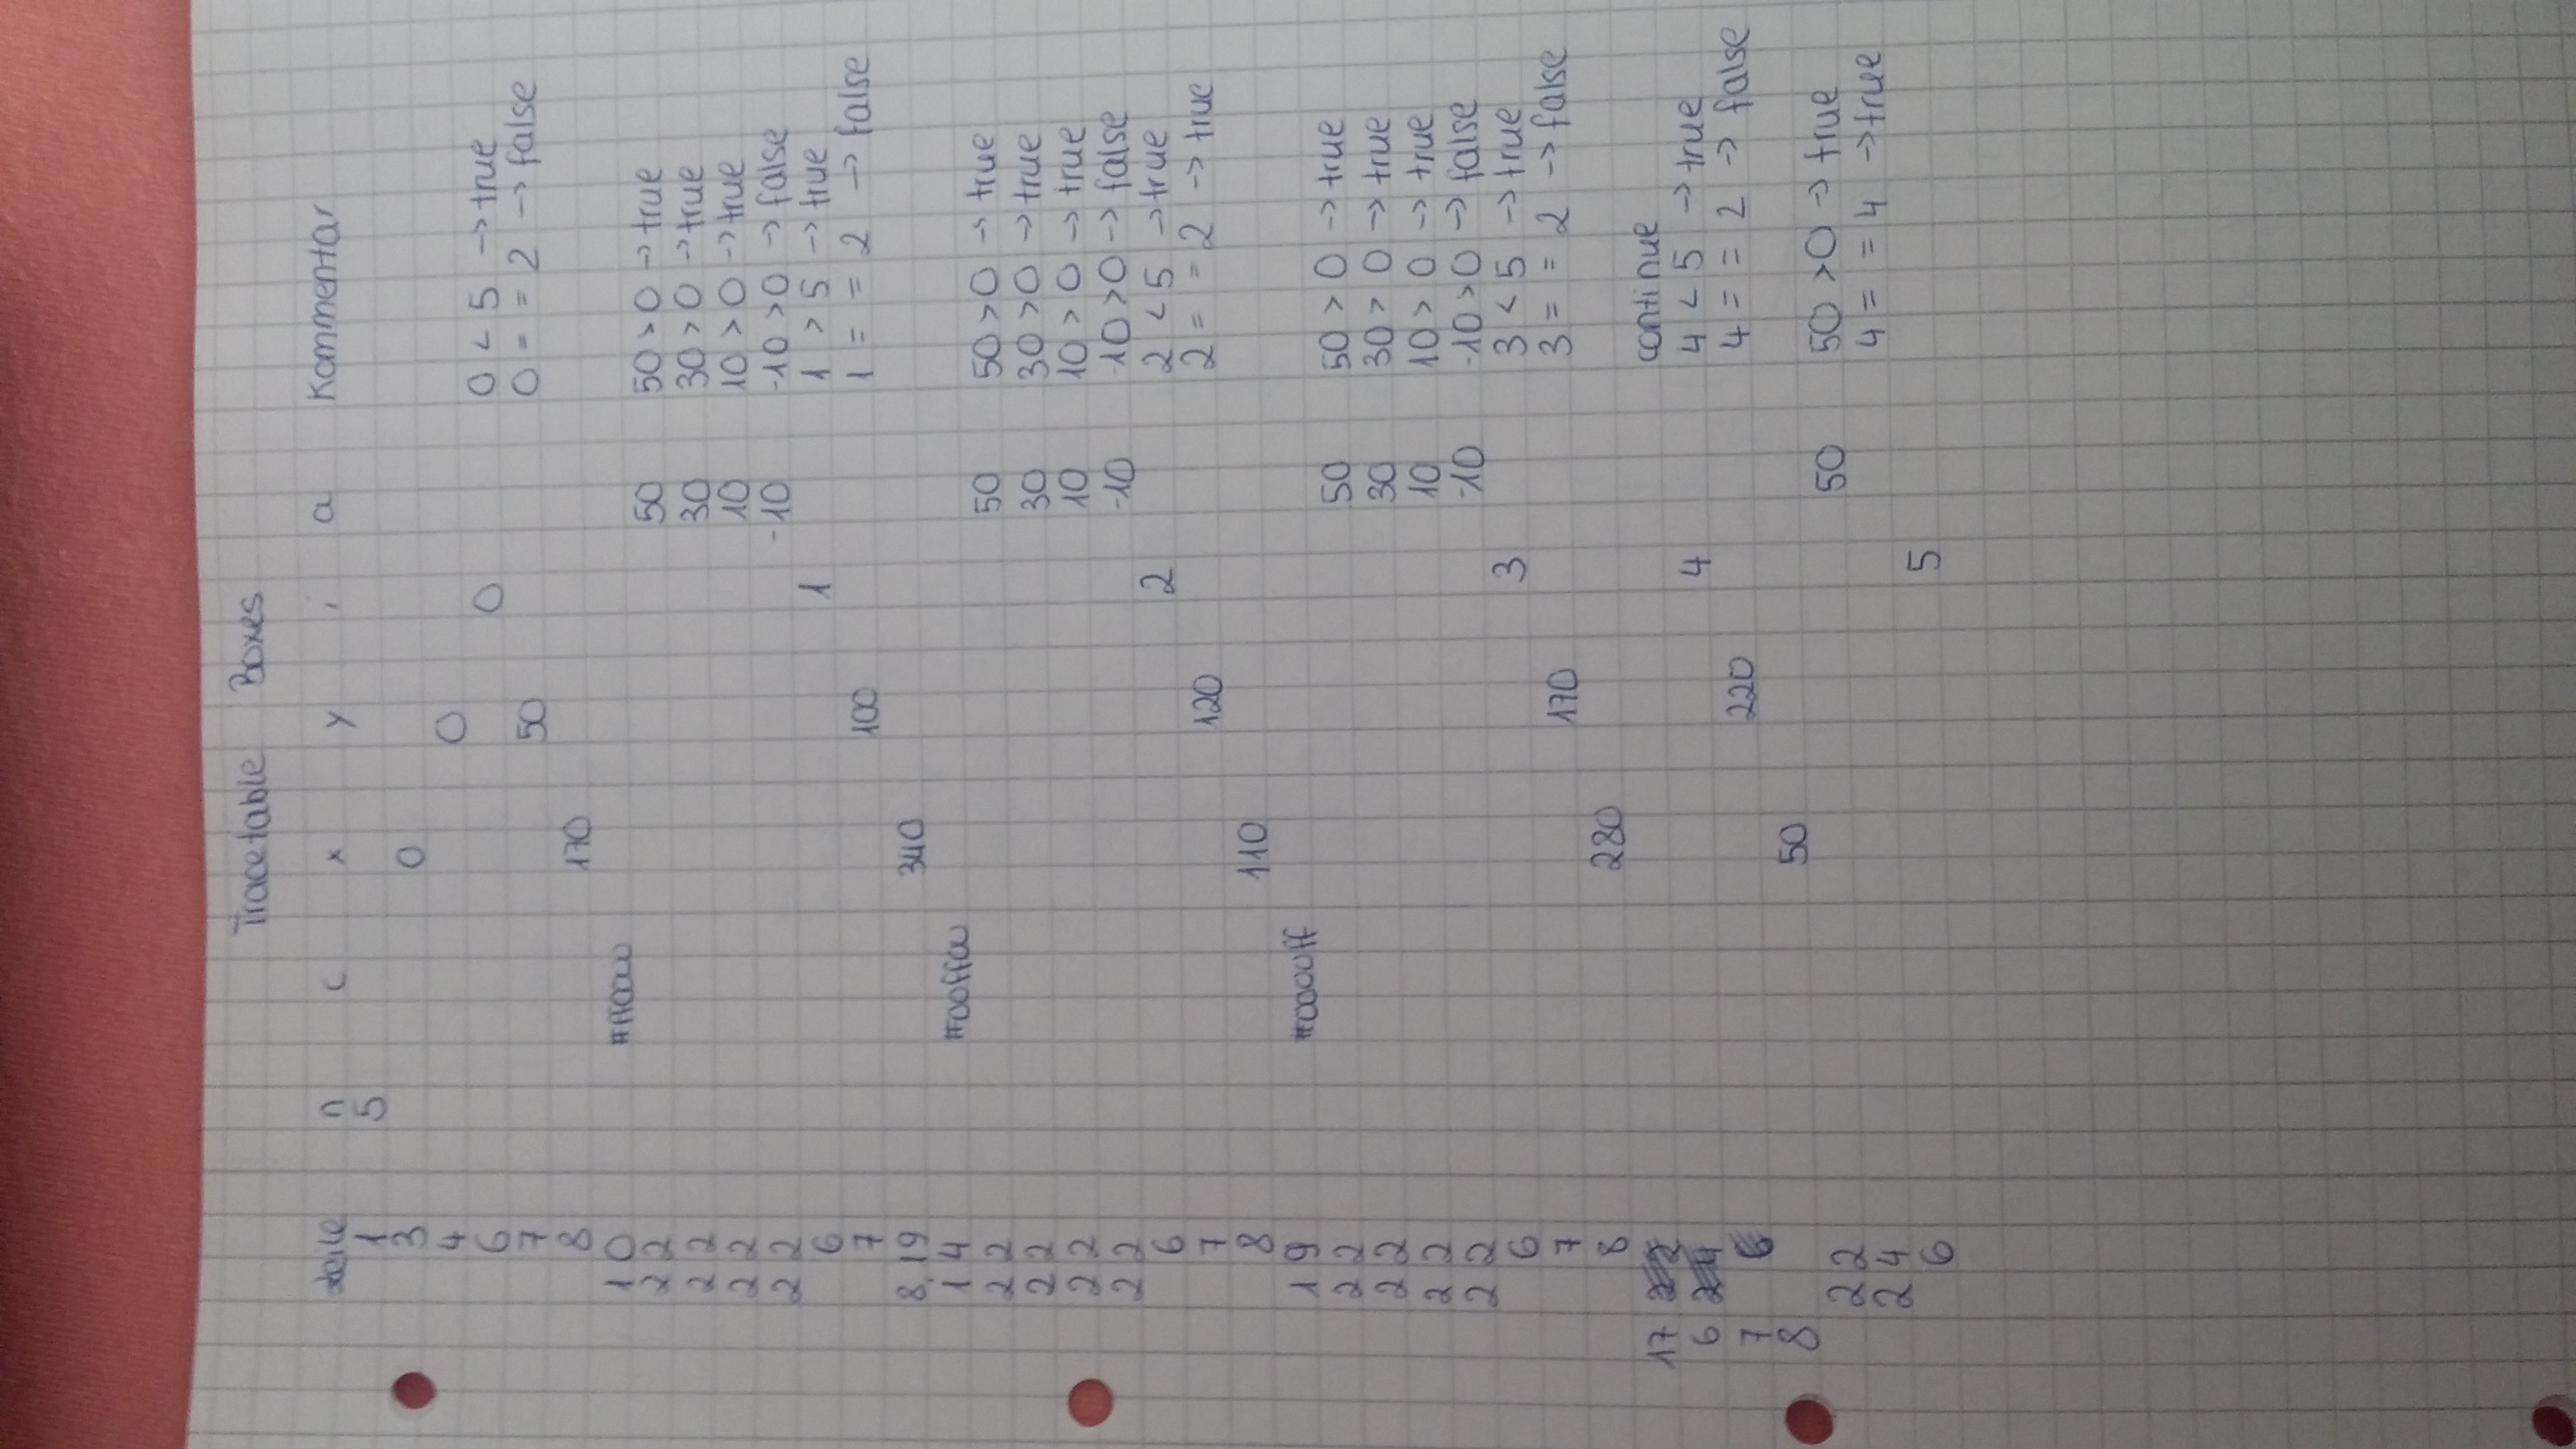 Tracetable Boxes
Zeile n c x y i a Kommentar
1 5
3 0
4 0
6 0 0 < 5 -> true
7 50 0 == 2 -> false
8 170
10 #ff0000
22 50 50 > 0 -> true
22 30 30 > 0 -> true
22 10 10 > 0 -> true
22 -10 -10 > 0 -> false
6 1 1 > 5 -> true
7 100 1 == 2 -> false
8,19 340
14 #00ff00
22 50 50 > 0 -> true
22 30 30 > 0 -> true
22 10 10 > 0 -> true
22 -10 -10 > 0 -> false
6 2 2 < 5 -> true
7 120 2 == 2 -> true
8 110
19 #0000ff
22 50 50 > 0 -> true
22 30 30 > 0 -> true
22 10 10 > 0 -> true
22 -10 -10 > 0 -> false
6 3 3 < 5 -> true
7 170 3 == 2 -> false
8 280
17 continue
6 4 4 < 5 -> true
7 220 4 == 2 -> false
8 50
22 50 50 > 0 -> true
24 4 == 4 -> true
6 5